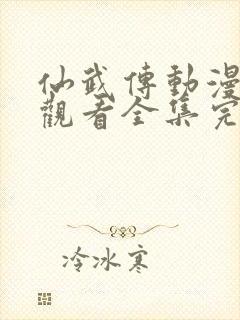 仙武傳動漫
觀看全集完
冷冰寒